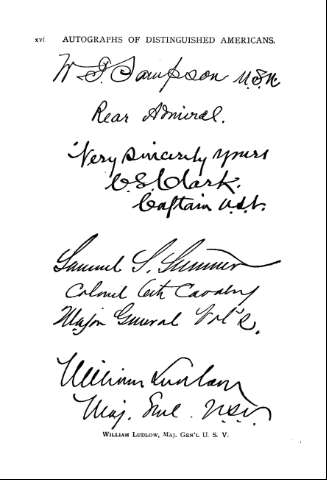 xvi AUTOGRAPHS OF DISTINGUISHED AMERICANS.
W. T. Sampson U.S.N.
Rear Admiral.
Very Sincerely yours
C. E. Clark.
Captain U.S.N.
Samuel S. Sumner
Colonel 6th Cavalry
Major General Vols.
William Ludlow
Maj. Genl. U.S.V.
WILLIAM LUDLOW, MAJ. GEN'L U. S. V.